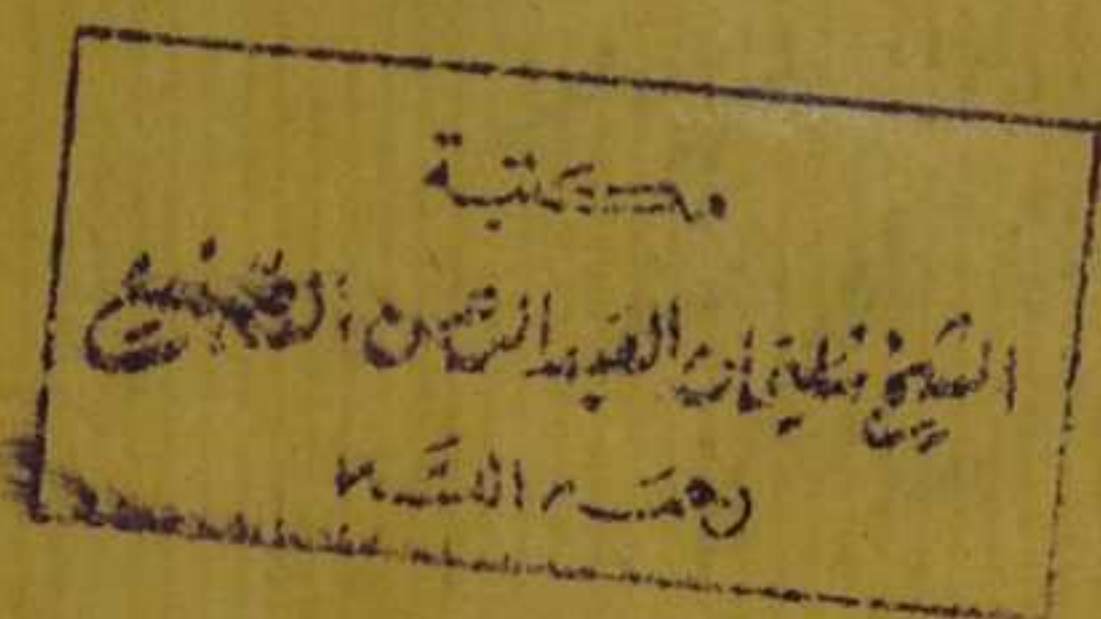 مكتبة
الشيخ سليمان العبد الرحمن الصنيع
رحمه الله